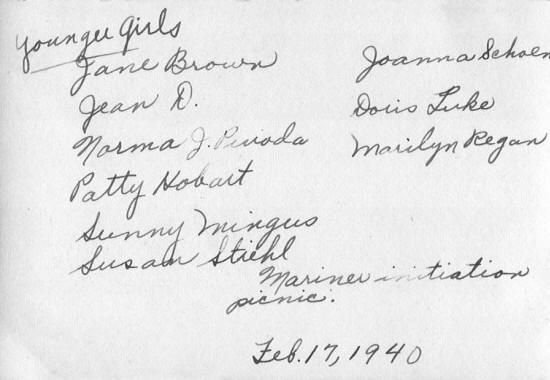 Younger Girls
Jane Brown
Jean D.
Norma J.
Patty Hobart
Sunny Mingus
Susan Stiehl
Joanna Schoen
Doris Luke
Marilyn Regan
Mariner initiation
picnic.
Feb. 17, 1940